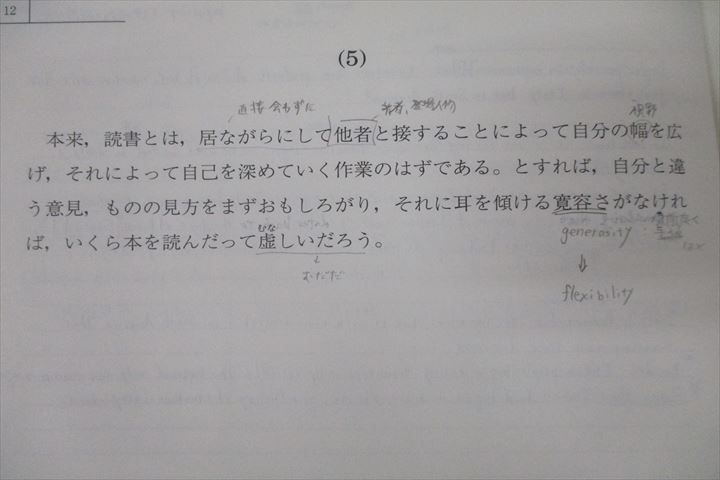 12
(5)
直接会わずに
著者、登場人物
視野
本来，読書とは，居ながらにして他者と接することによって自分の幅を広
げ，それによって自己を深めていく作業のはずである。とすれば，自分と違
う意見，ものの見方をまずおもしろがり，それに耳を傾ける寛容さがなけれ
むな
ば，いくら本を読んだって虚しいだろう。
generosity :
↓
むだだ
↓
flexibility